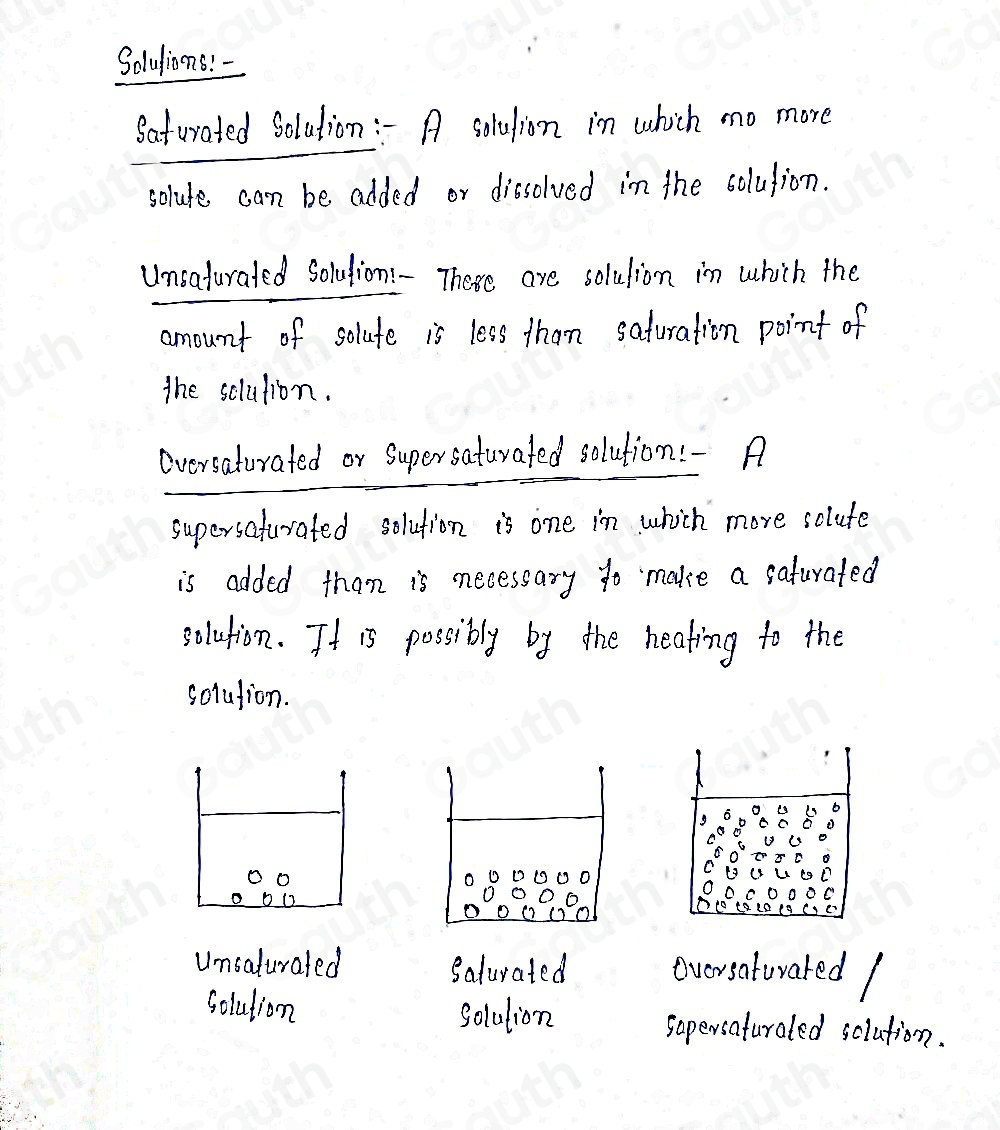 Solutions:-
Saturated Solution :- A solution in which no more
solute can be added or dissolved in the solution.
Unsaturated Solution:- These are solution in which the
amount of solute is less than saturation point of
the solution.
Oversaturated or Supersaturated solution:- A
supersaturated solution is one in which more solute
is added than is necessary to make a saturated
solution. It is possibly by the heating to the
solution.
Unsaturated
Solution
Saturated
Solution
Oversaturated /
Sapersaturated solution.
Gauth